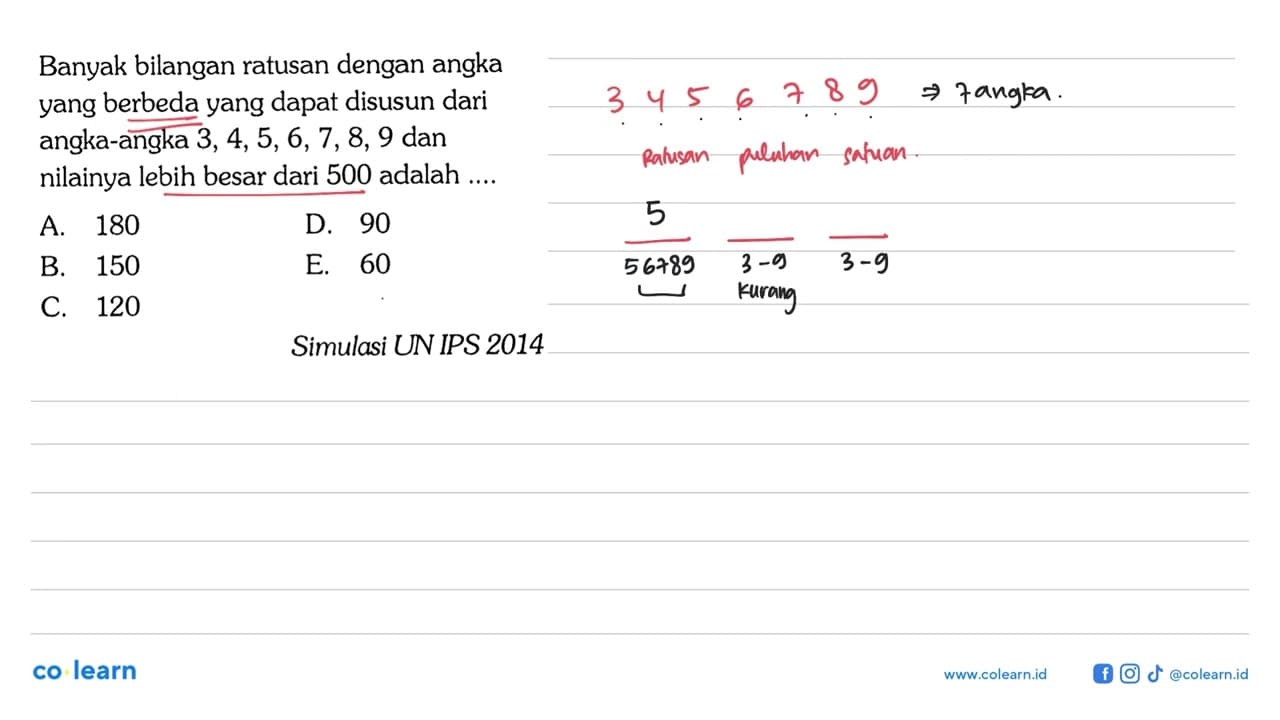 Banyak bilangan ratusan dengan angka
yang berbeda yang dapat disusun dari
angka-angka 3, 4, 5, 6, 7, 8, 9 dan
nilainya lebih besar dari 500 adalah ....
A. 180 D. 90
B. 150 E. 60
C. 120
Simulasi UN IPS 2014
3 4 5 6 7 8 9 ⇒ 7 angka.
Ratusan puluhan satuan.
5
56789 3-9 3-9
kurang
co learn
www.colearn.id @colearn.id